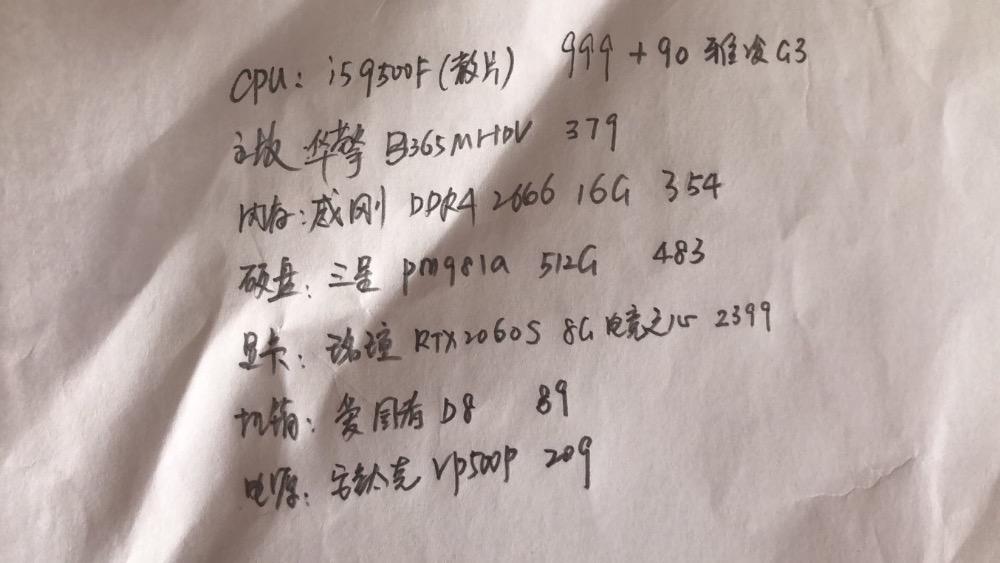 CPU: i5 9500F(散片) 999 + 90 雅浚G3
主板 华擎 B365MHDV 379
内存: 威刚 DDR4 2666 16G 354
硬盘: 三星 pm981a 512G 483
显卡: 铭瑄 RTX2060S 8G 电竞之心 2399
机箱: 爱国者 D8 89
电源: 安钛克 VP500P 209